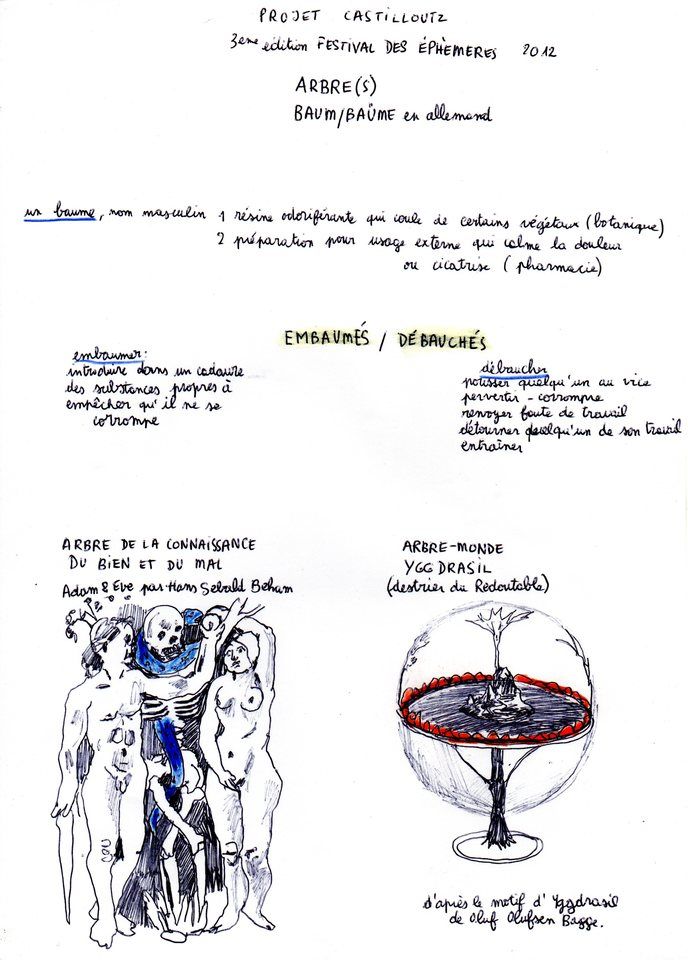 PROJET CASTILLOUTZ
3ème édition FESTIVAL DES ÉPHÈMERES 2012
ARBRE(S)
BAUM/BAÛME en allemand
un baume, nom masculin 1 résine odoriférante qui coule de certains végétaux (botanique)
2 préparation pour usage externe qui calme la douleur
ou cicatrise (pharmacie)
EMBAUMÉS / DÉBAUCHÉS
embaumer:
introduire dans un cadavre
des substances propres à
empêcher qu'il ne se
corrompe
débaucher
pousser quelqu'un au vice
pervertir - corrompre
renvoyer faute de travail
détourner quelqu'un de son travail
entraîner
ARBRE DE LA CONNAISSANCE
DU BIEN ET DU MAL
Adam & Eve par Hans Sebald Beham
ARBRE-MONDE
YGGDRASIL
(destrier du Redoutable)
d'après le motif d'Yggdrasil
de Oluf Olufsen Bagge.